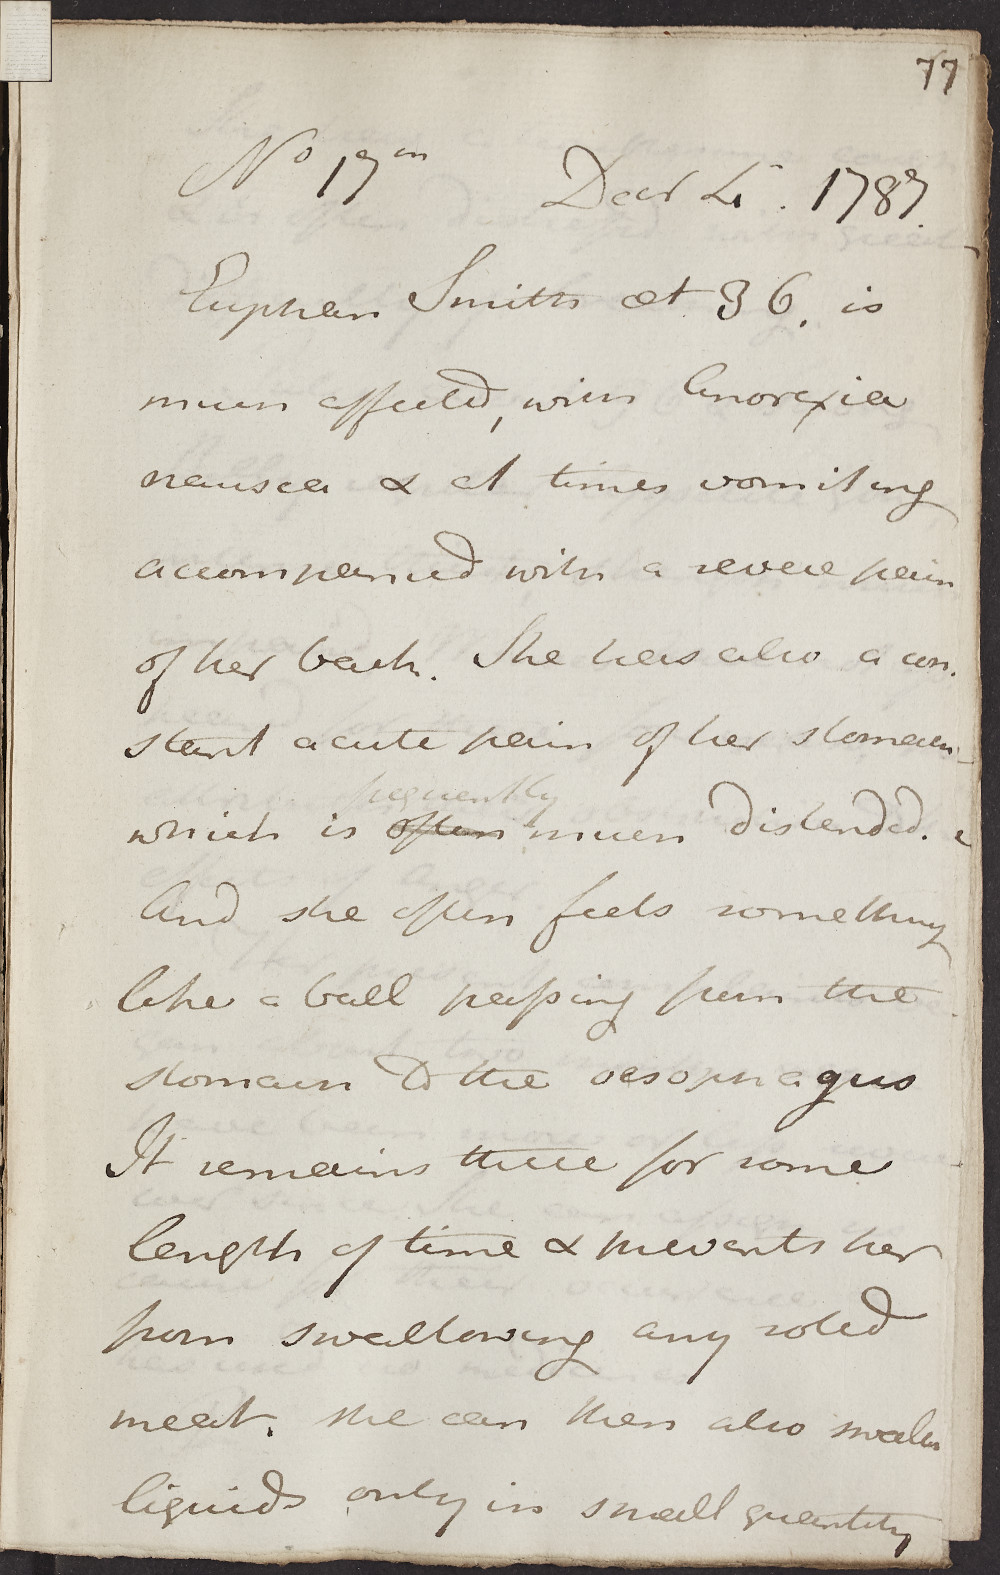 77
No 17th Decr 4. 1787.
Euphan Smith æt 36. is
much affected, with Anorexia
nausea & at times vomiting
accompanied with a severe pain
of her back. She has also a con-
stant acute pain of her stomach
frequently
which is often much distended.
And she often feels something
like a ball passing from the
stomach to the oesophagus
It remains there for some
length of time & prevents her
from swallowing any solid
meat. she can then also swallow
liquids only in small quantity